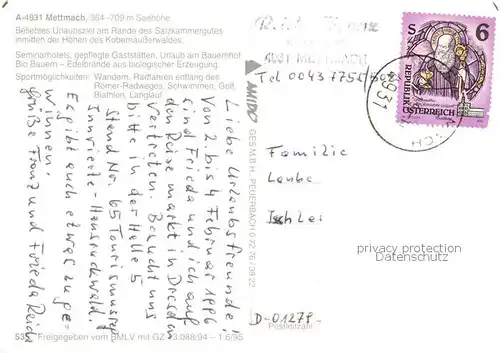 A-4931 Mettmach, 364-709 m Seehöhe
Beliebtes Urlaubsziel am Rande des Salzkammergutes
inmitten der Höhen des Kobernaußerwaldes.
Seminarhotels, gepflegte Gaststätten, Urlaub am Bauernhof
Bio Bauern - Edelbrände aus biologischer Erzeugung.
Sportmöglichkeiten: Wandern, Radfahren entlang des
Römer-Radweges, Schwimmen, Golf,
Biathlon, Langlauf
Liebe Urlaubsfreunde!
Von 2. bis 4 Februar 1996
sind Frieda und ich auf
den Reisemarkt in Dresden
vertreten. Besucht uns
bitte in der Halle 5
Stand Nr. 65 Tourismusreg
Innviertel-Hausruckwald.
Es gibt auch etwas zu ge-
winnen.
Grüße Franz und Frieda Reich
535
Freigegeben vom BMLV mit GZ 13.088/94 - 1.6/95
AMIDO
GES.M.B.H. PEUERBACH 0 72 76 / 38 22
4931 METTMACH
Tel 0043 7755
4931
S 6
REPUBLIK
ÖSTERREICH
Familie
privacy protection
Datenschutz
D-01279
Postleitzahl